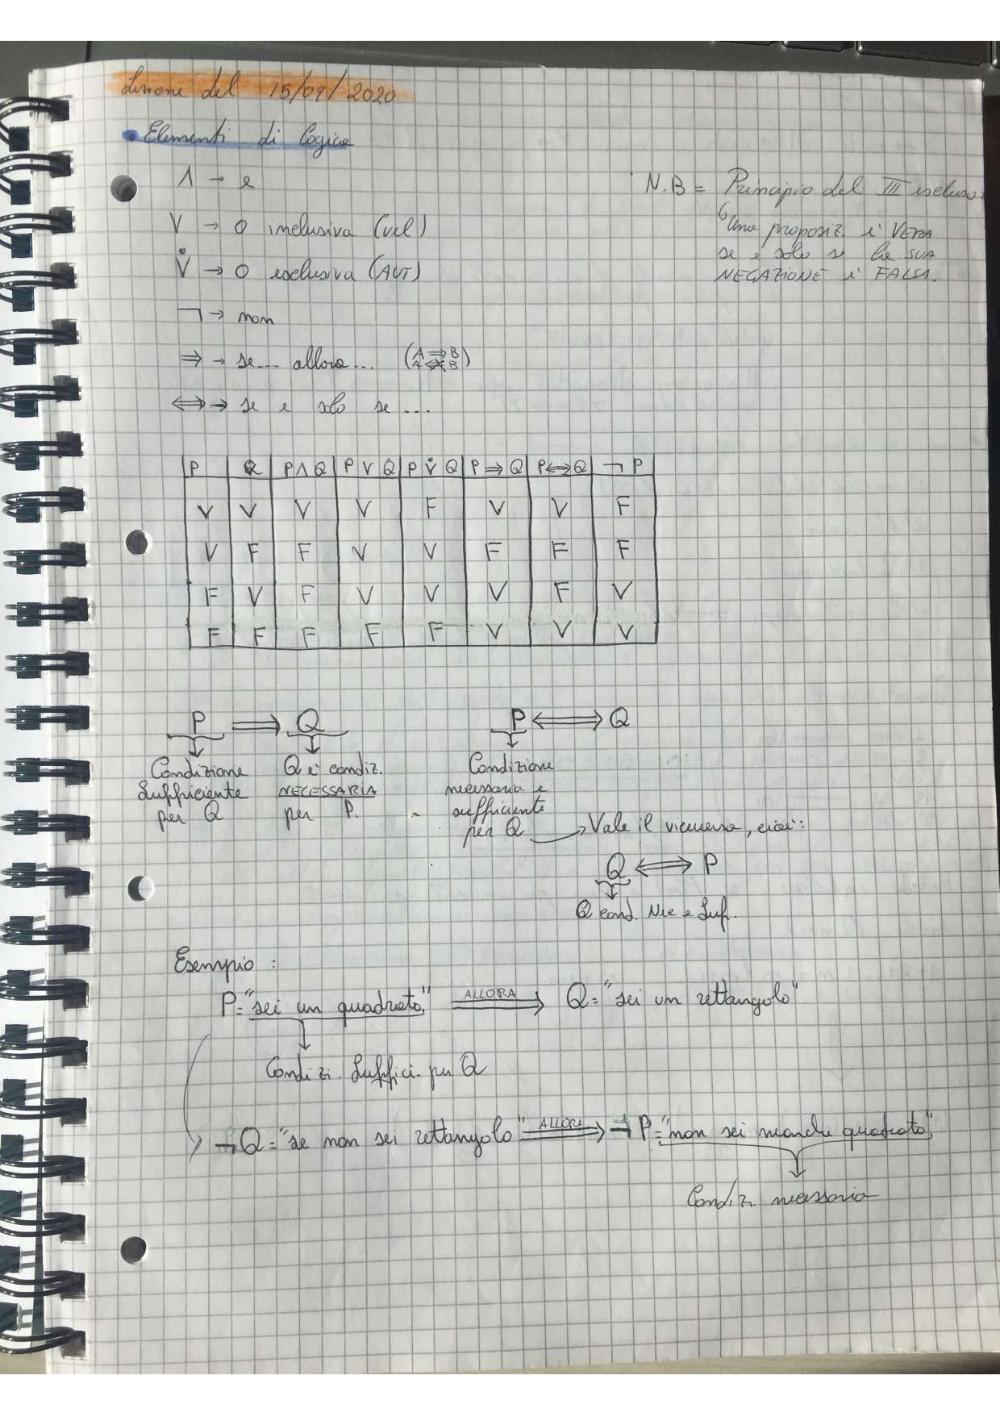 Lezione del 15/09/2020
• Elementi di logica
Λ → e
V → o inclusiva (vel)
V̇ → o esclusiva (AUT)
¬ → non
⇒ → se... allora... (A ⇒ B
A ⇍ B)
⟺ → se e solo se ...
N.B = Principio del III escluso:
Una proposiz. è VERA
se e solo se la sua
NEGAZIONE è FALSA.
P Q P Λ Q P V Q P V̇ Q P ⇒ Q P ⟺ Q ¬ P
V V V V F V V F
V F F V V F F F
F V F V V V F V
F F F F F V V V
P ⟹ Q
Condizione
Sufficiente
per Q
Q è condiz.
NECESSARIA
per P.
P ⟺ Q
Condizione
necessaria e
sufficiente
per Q
Vale il viceversa, cioè:
Q ⟺ P
Q cond. Nec e Suf.
Esempio :
P = "sei un quadrato" ALLORA ⟹ Q = "sei un rettangolo"
Condizi. Suffici. per Q
¬Q = "se non sei rettangolo" ALLORA ⟹ ¬P = "non sei manche quadrato"
Condiz. necessaria